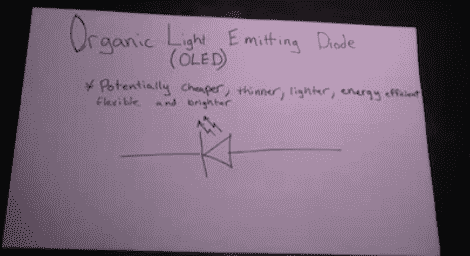 Organic Light Emitting Diode
(OLED)
* Potentially cheaper, thinner, lighter, energy efficient
flexible and brighter